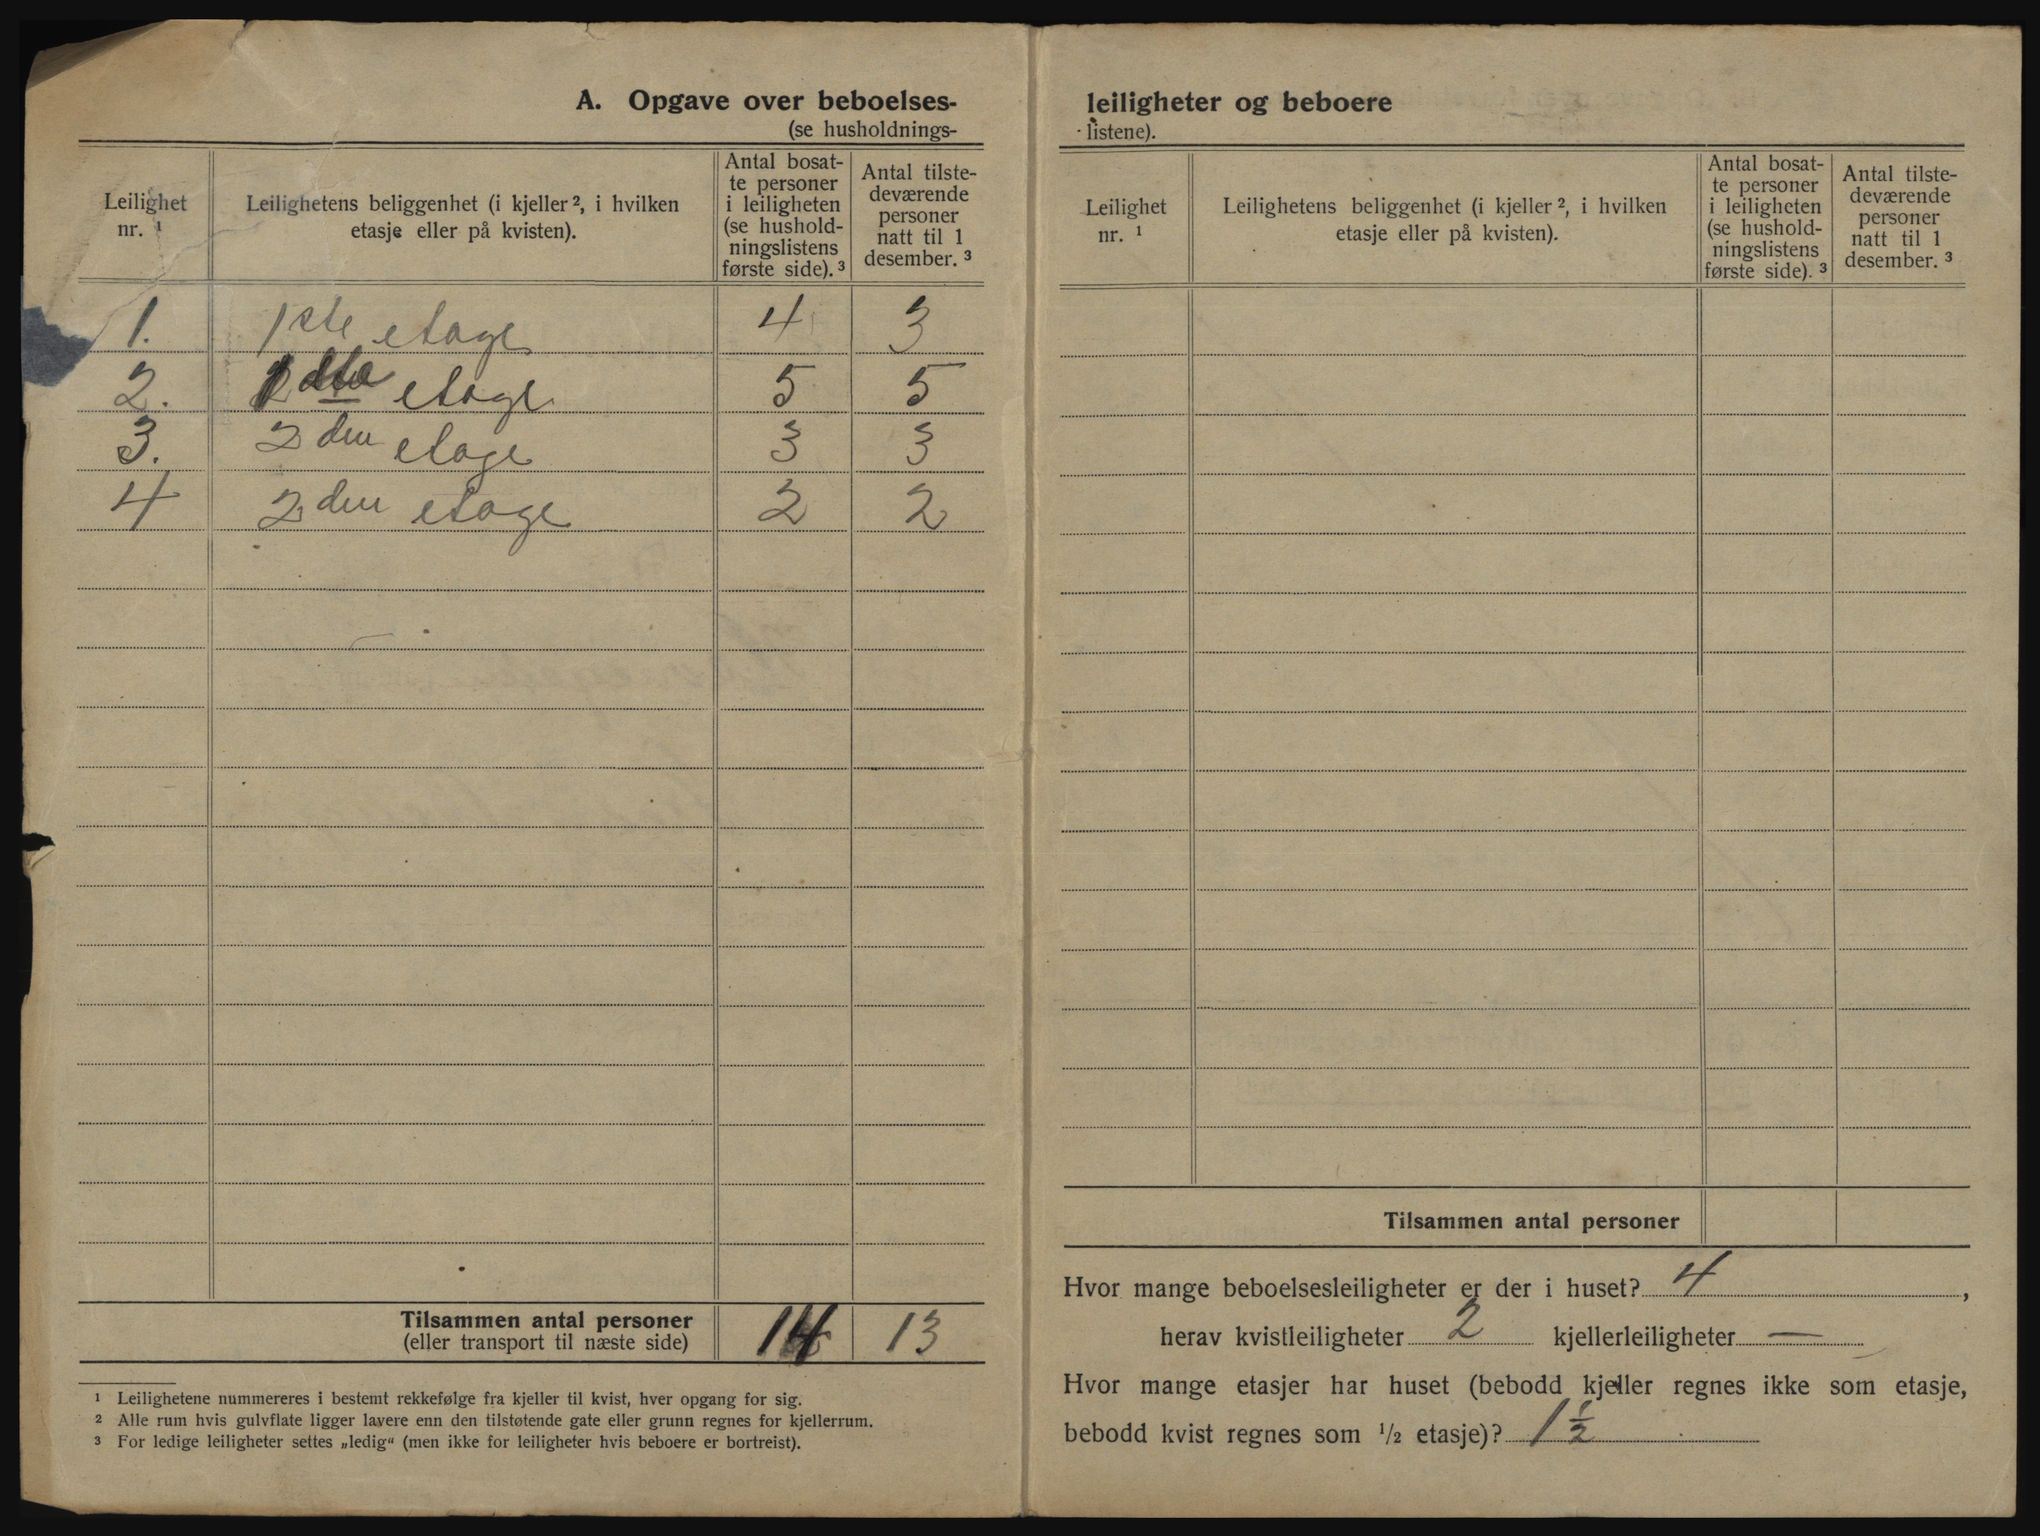 A. Opgave over beboelses-
(se husholdnings-
Leilighet nr. ¹
Leilighetens beliggenhet (i kjeller ², i hvilken etasje eller på kvisten).
Antal bosat-
te personer
i leiligheten
(se hushold-
ningslistens
første side). ³
Antal tilste-
deværende
personer
natt til 1
desember. ³
1. 1ste etage 4 3
2. etage 5 5
3. 2den etage 3 3
4 2den etage 2 2
Tilsammen antal personer 14 13
(eller transport til næste side)
¹ Leilighetene nummereres i bestemt rekkefølge fra kjeller til kvist, hver opgang for sig.
² Alle rum hvis gulvflate ligger lavere enn den tilstøtende gate eller grunn regnes for kjellerrum.
³ For ledige leiligheter settes „ledig“ (men ikke for leiligheter hvis beboere er bortreist).
leiligheter og beboere
listene).
Leilighet nr. ¹
Leilighetens beliggenhet (i kjeller ², i hvilken etasje eller på kvisten).
Antal bosat-
te personer
i leiligheten
(se hushold-
ningslistens
første side). ³
Antal tilste-
deværende
personer
natt til 1
desember. ³
Tilsammen antal personer
Hvor mange beboelsesleiligheter er der i huset? 4,
herav kvistleiligheter 2 kjellerleiligheter —
Hvor mange etasjer har huset (bebodd kjeller regnes ikke som etasje,
bebodd kvist regnes som ½ etasje)? 1 ½